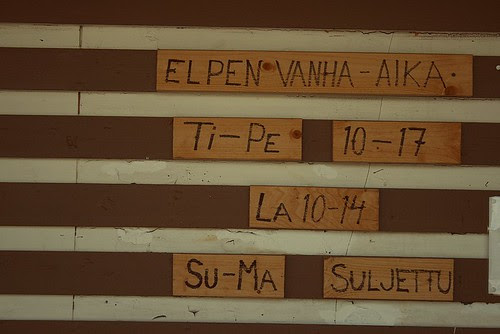 ELPEN VANHA-AIKA
Ti-Pe 10-17
La 10-14
Su-Ma SULJETTU